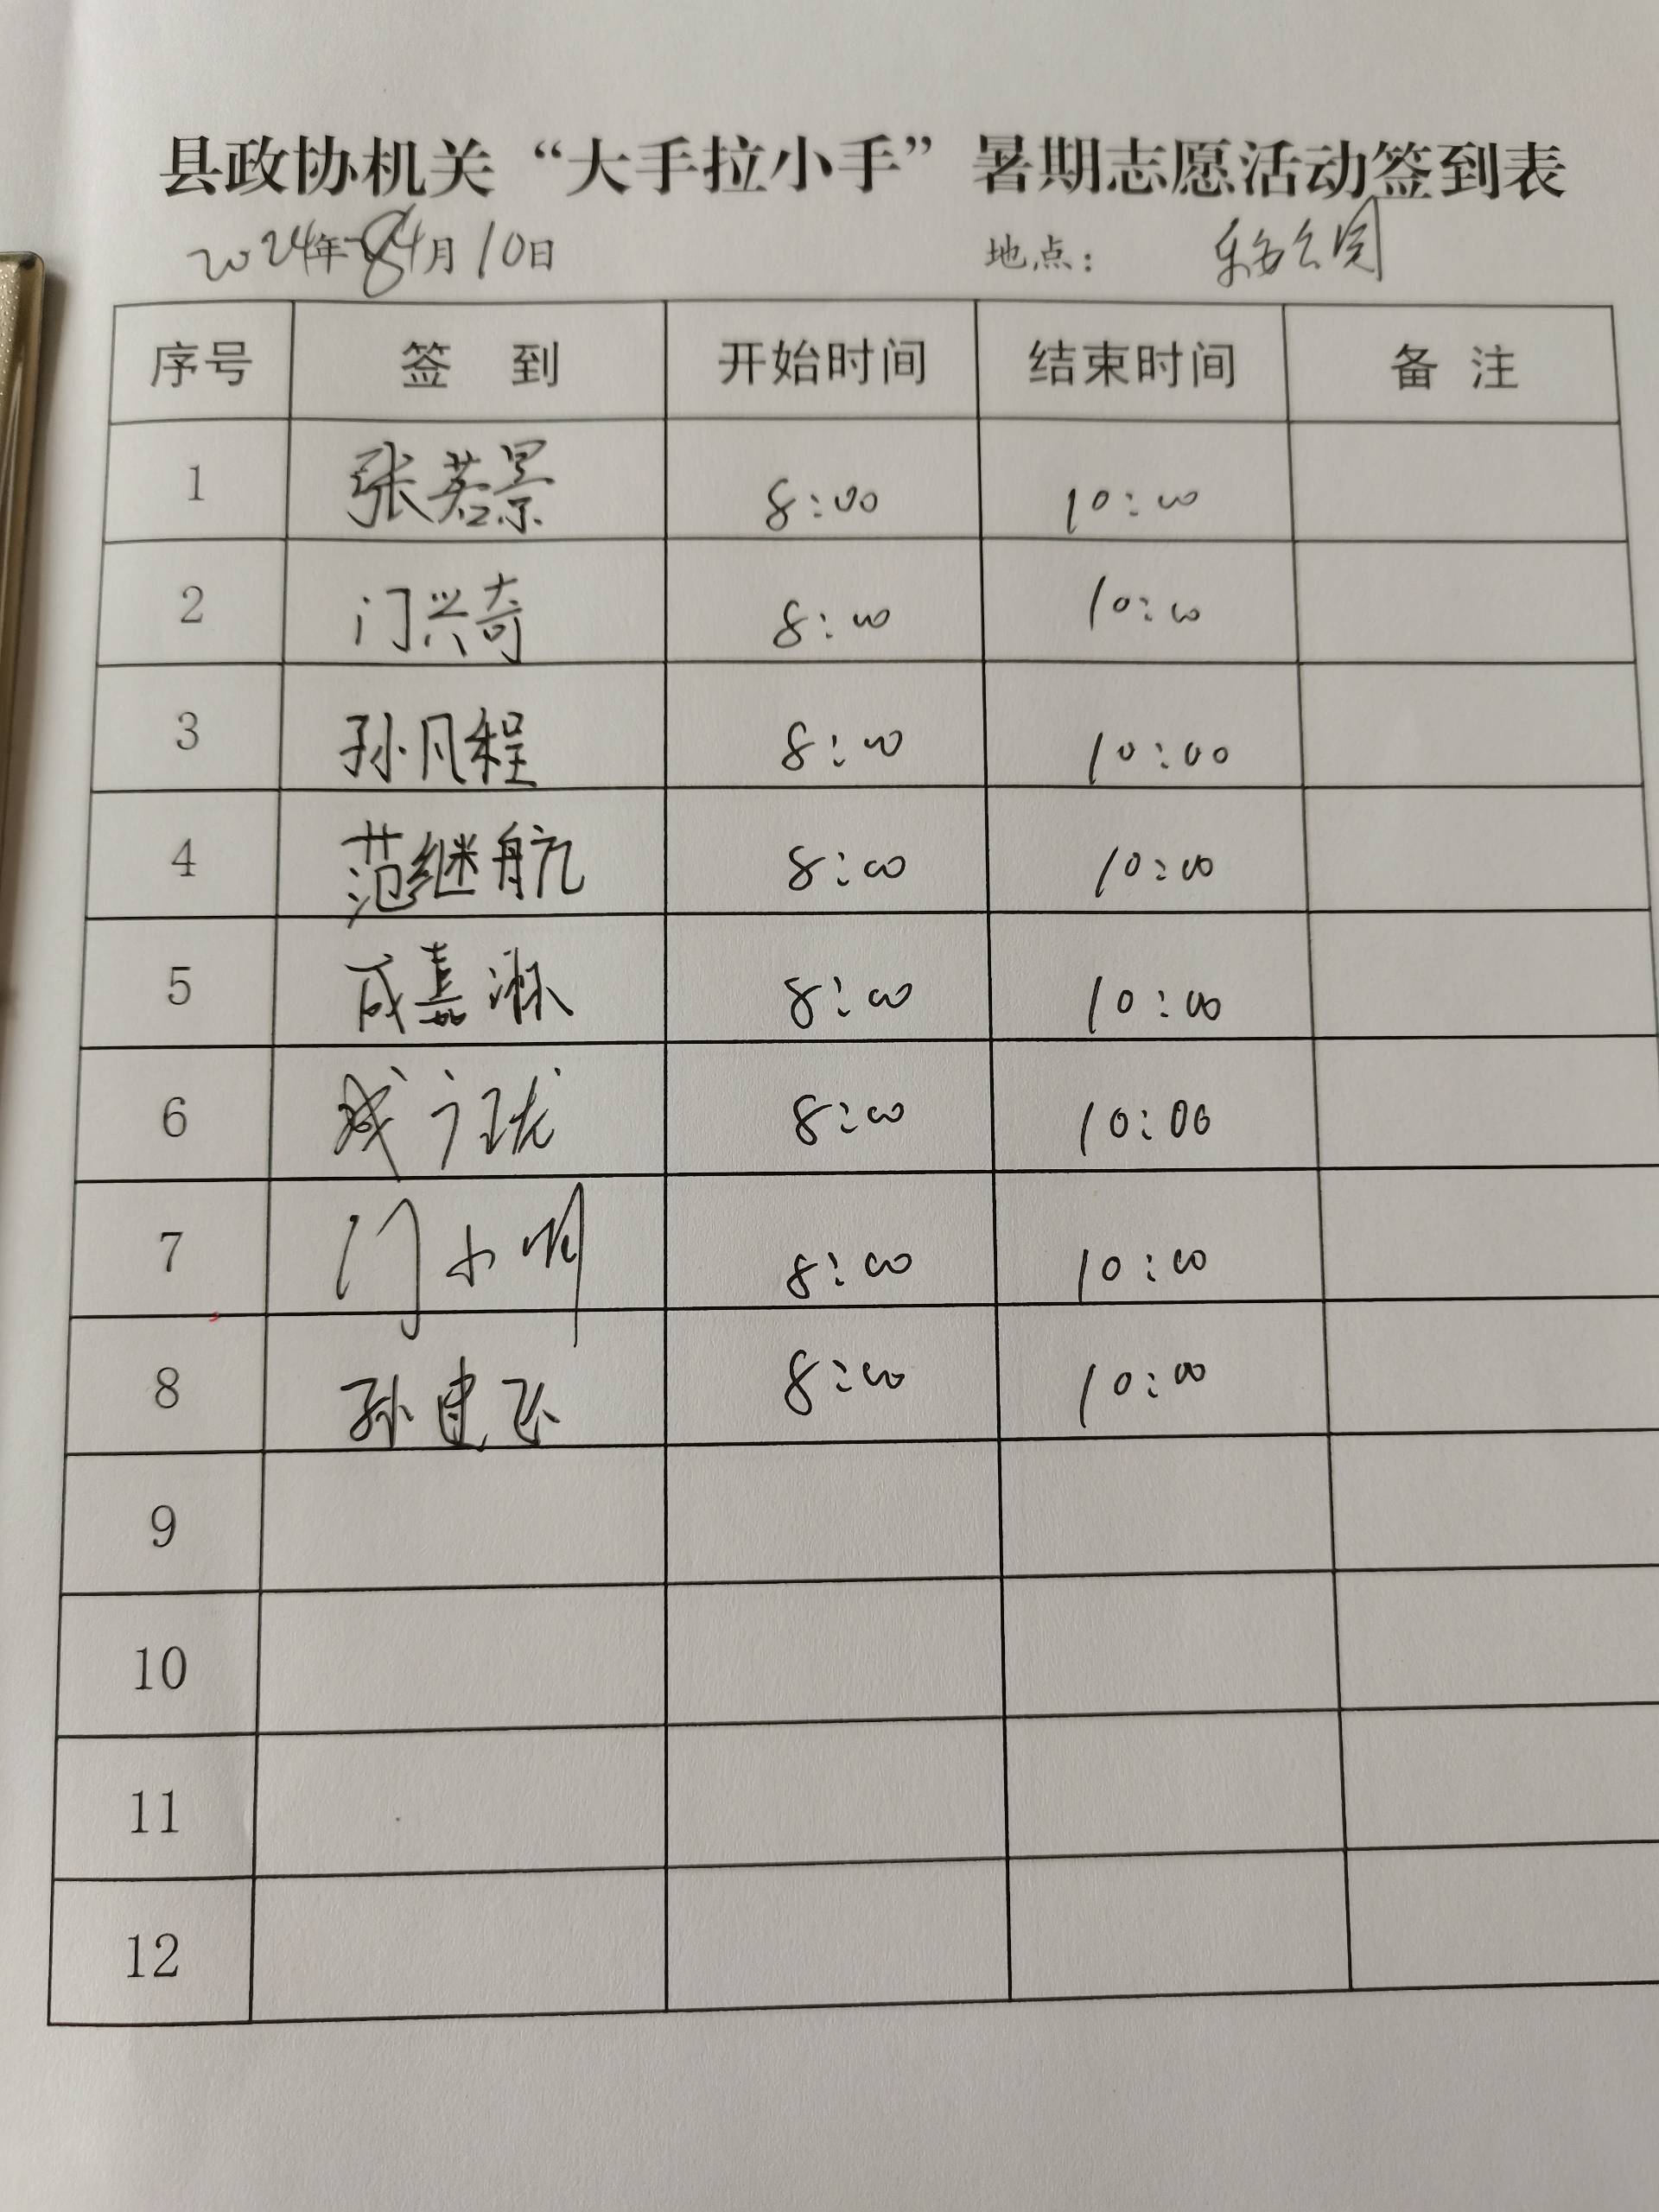 县政协机关“大手拉小手”暑期志愿活动签到表
2024年8月10日 地点：公园
序号 签 到 开始时间 结束时间 备 注
1 张若景 8:00 10:00
2 门兴奇 8:00 10:00
3 孙凡程 8:00 10:00
4 范继航 8:00 10:00
5 成嘉淋 8:00 10:00
6 成 8:00 10:00
7 门小明 8:00 10:00
8 孙建飞 8:00 10:00
9
10
11
12